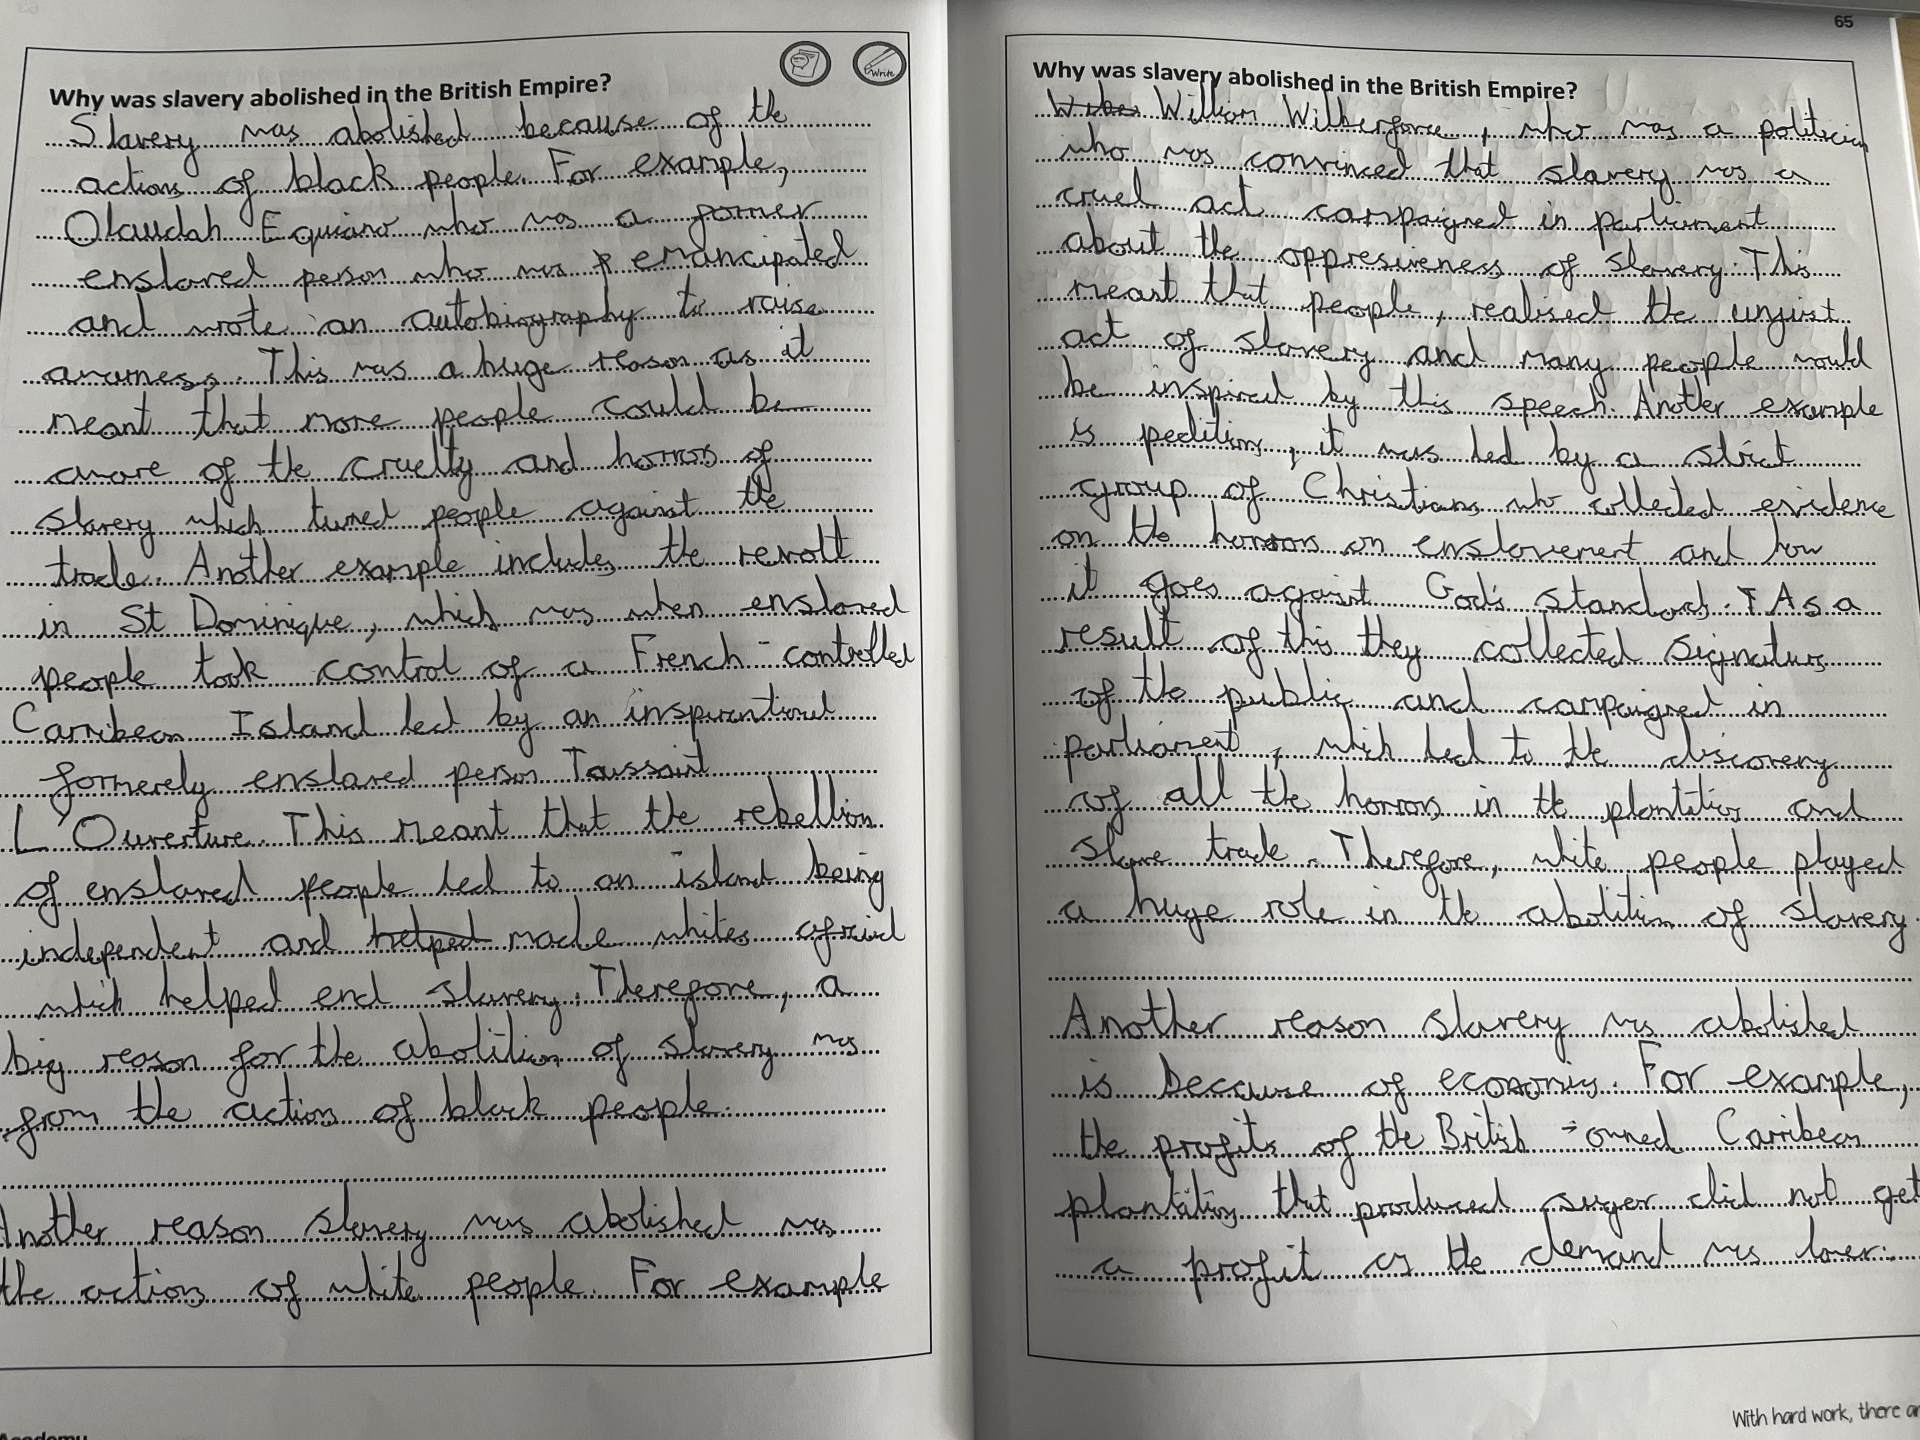 Why was slavery abolished in the British Empire?
Write
Slavery was abolished because of the
actions of black people. For example,
Olaudah Equiano who was a former
enslaved person who was emancipated
and wrote an autobiography to raise
awarness. This was a huge reason as it
meant that more people could be
aware of the cruelty and horrors of
slavery which turned people against the
trade. Another example includes the revolt
in St Dominique, which was when enslaved
people took control of a French-controlled
Carribean Island led by an inspirational
formerely enslaved person Toussaint
L'Ouverture. This meant that the rebellion
of enslaved people led to an island being
independent and helped made whites afraid
which helped end slavery. Therefore, a
big reason for the abolition of slavery was
from the actions of black people.
Another reason slavery was abolished was
the actions of white people. For example
65
Why was slavery abolished in the British Empire?
William Wilberforce, who was a politician
who was convinced that slavery was a
cruel act campaigned in parliament
about the oppresiveness of slavery. This
meant that people, realised the unjust
act of slavery and many people would
be inspired by this speech. Another example
is peditions, it was led by a strict
group of Christians who collected evidence
on the horrors on enslavement and how
it goes against God's standards. T As a
result of this they collected signatures
of the public and campaigned in
parliament, which led to the discovery
of all the horrors in the plantations and
slave trade. Therefore, white people played
a huge role in the abolition of slavery.
Another reason slavery was abolished
is because of economics. For example,
the profits of the British-owned Carribean
plantations that produced suger did not get
a profit as the demand was lower.
With hard work, there
Academy